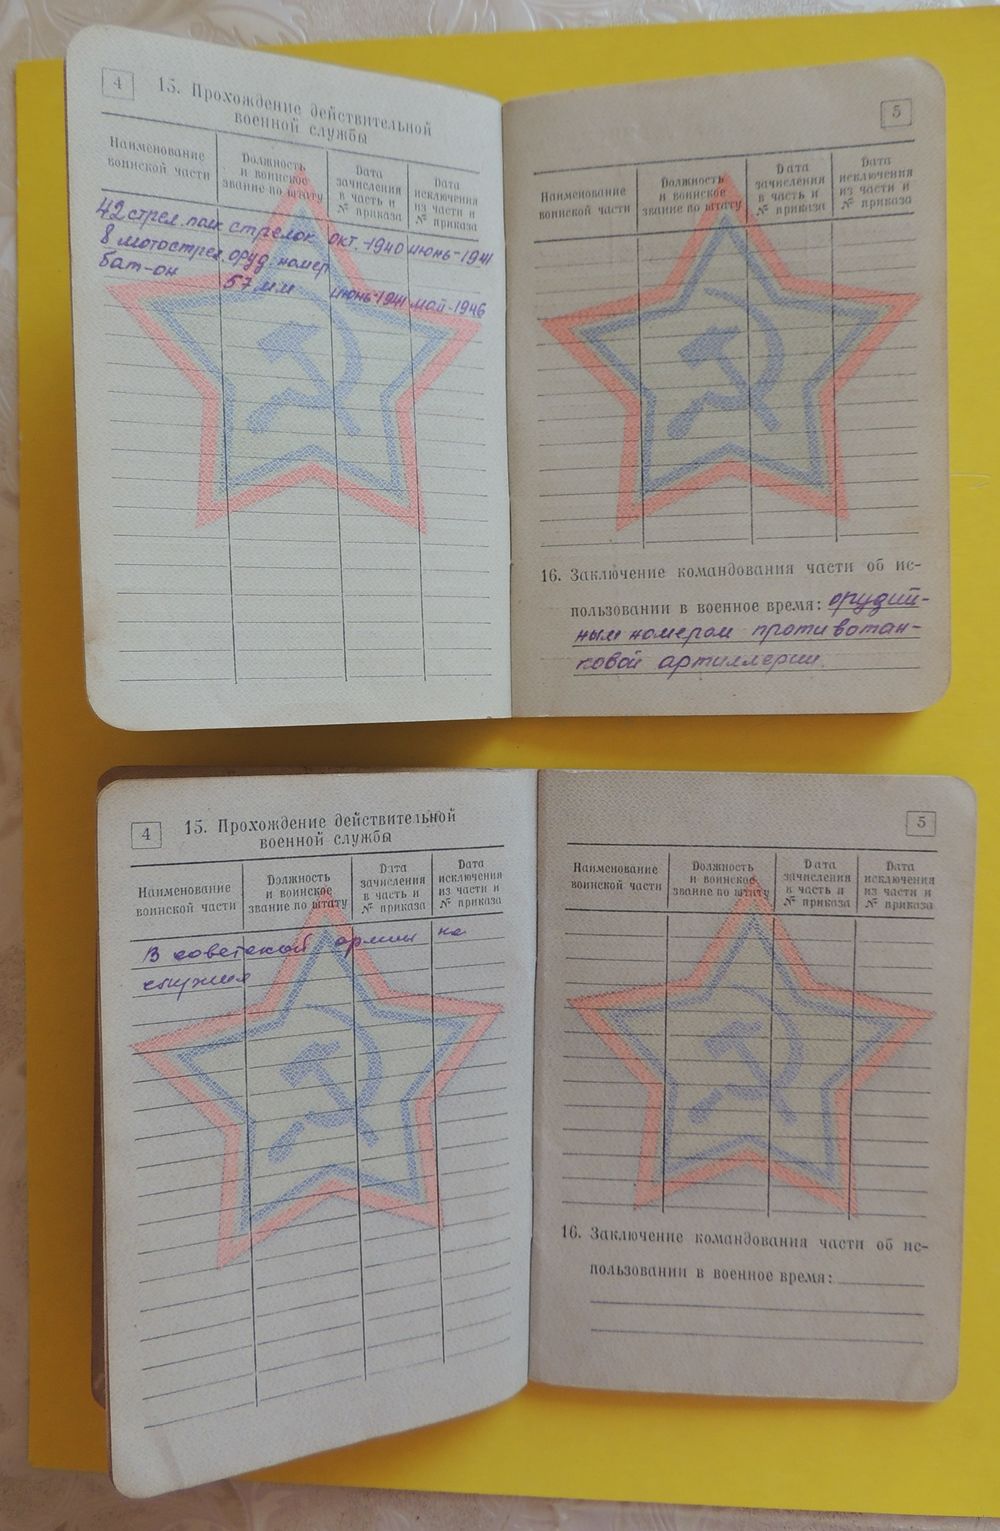 4
15. Прохождение действительной
военной службы
Наименование
воинской части
Должность
и воинское
звание по штату
Дата
зачисления
в часть и
№ приказа
Дата
исключения
из части и
№ приказа
42 стрел. полк стрелок окт.-1940 июнь-1941
8 мотострел. оруд. номер
бат-он
57 мм июнь-1941 май-1946
5
Наименование
воинской части
Должность
и воинское
звание по штату
Дата
зачисления
в часть и
№ приказа
Дата
исключения
из части и
№ приказа
16. Заключение командования части об ис-
пользовании в военное время: орудий-
ным номером противотан-
ковой артиллерии.
4
15. Прохождение действительной
военной службы
Наименование
воинской части
Должность
и воинское
звание по штату
Дата
зачисления
в часть и
№ приказа
Дата
исключения
из части и
№ приказа
В советской армии не
служил
5
Наименование
воинской части
Должность
и воинское
звание по штату
Дата
зачисления
в часть и
№ приказа
Дата
исключения
из части и
№ приказа
16. Заключение командования части об ис-
пользовании в военное время: